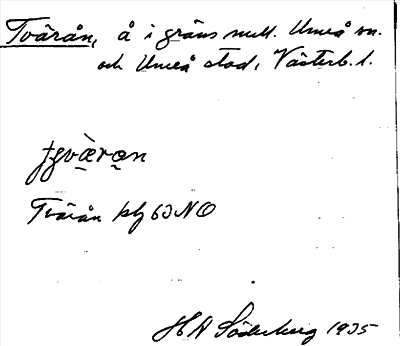 Tvärån, å i gräns mell. Umeå sn.
och Umeå stad, Västerb. l.
Tvärån kbl 63 NO
H A Söderberg 1935